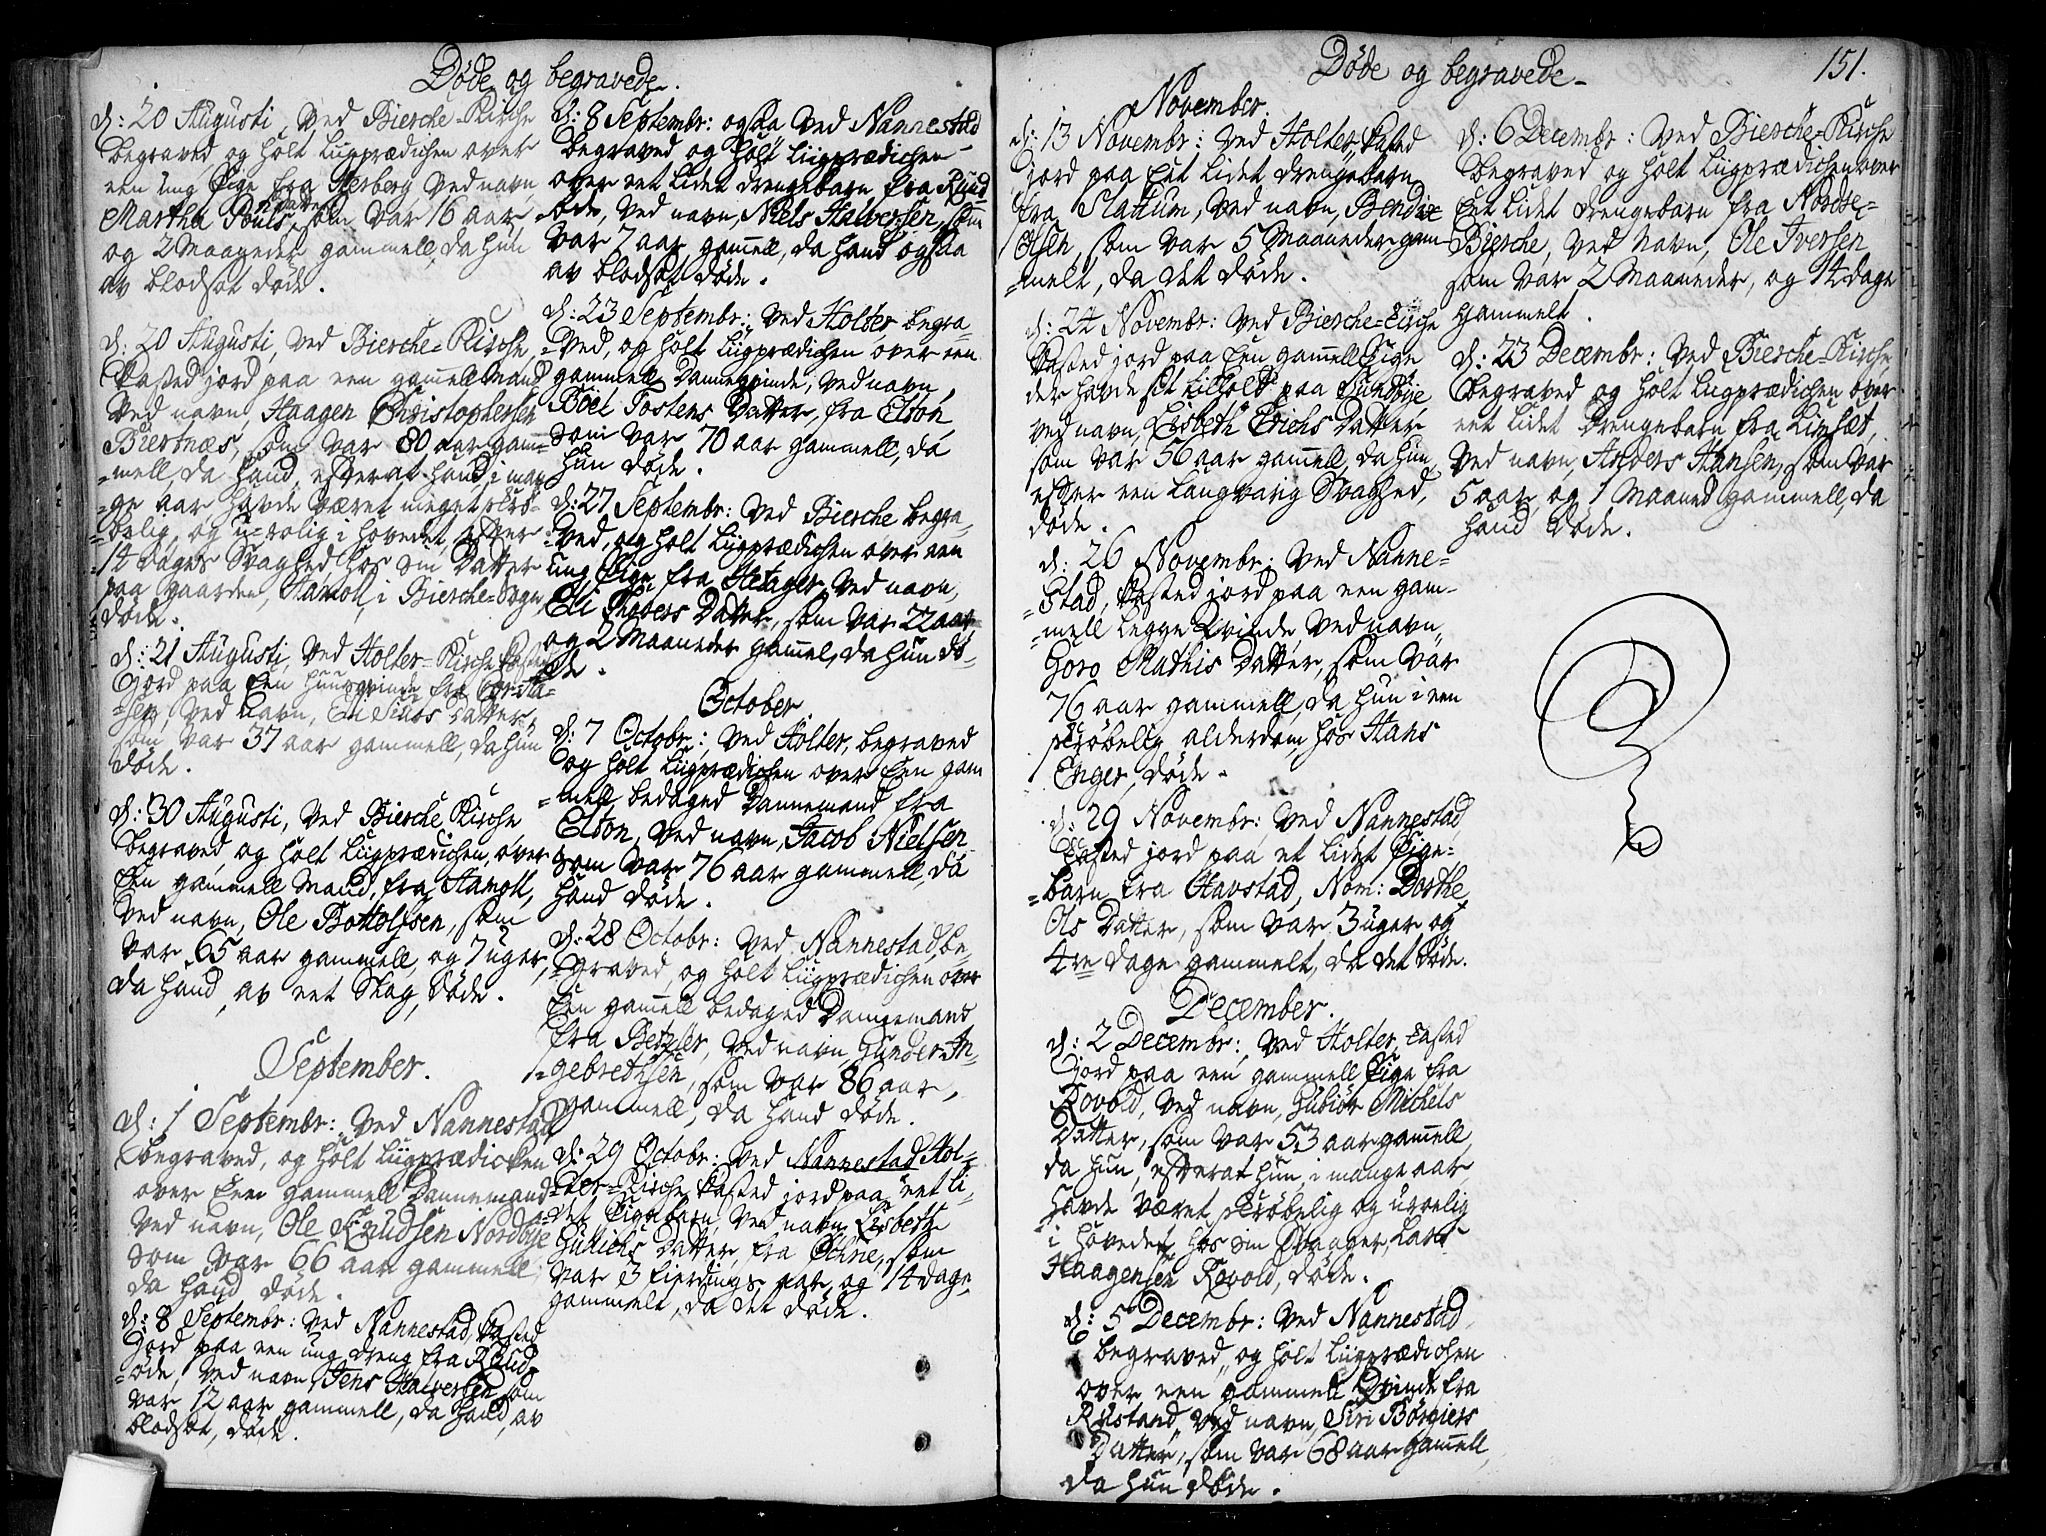 Døde og begravede.
d: 20 Augusti, ved Bierche-Kirche
begraved, og holt Liigprædichen over
een ung Pige fra Herberg, ved navn,
Martha Pouls Datter, som var 16 aar
og 2 Maaneder gammell, da hun
av blodsot døde.
d: 20 Augusti, ved Bierche-Kirche,
kasted jord paa een gam̄ell Mand
ved navn, Haagen Christophersen
Biertnæs, som var 80 aar gam-
mell, da hand, efterat hand, i man-
ge aar havde været meget skrø-
belig, og u-rolig i hovedet, efter
14 dages Svaghed, hos sin Datter
paa gaarden, Hamoll, i Bierche-Sogn
døde.
d: 21 Augusti, ved Holter-Kirche, kasted
jord paa Een huuskvinde fra
ved navn, Eli Datter,
som var 37 aar gammell, da hun
døde.
d: 30 Augusti, ved Bierche Kirche,
begraved, og holt Liigprædichen, over
Een gammell Mand, fra Hamoll,
ved navn, Ole Bottolfsen, som
var 65 aar gammell, og 7 uger,
da hand, av eet Slag, døde.
September.
d: 1 Septembr: ved Nannestad
begraved, og holt Liigprædicken
over Een gammell Dannemand
ved navn, Ole Knudsen Nordbye
som var 66 aar gammell,
da hand døde.
d: 8 Septembr: ved Nannestad, kasted
jord paa een ung dreng fra Rud-
ode, ved navn, Jens Halversen, som
var 12 aar gammell, da hand, av
blodsot, døde.
d: 8 Septembr: ogsaa ved Nannestad
begraved, og holt Liigprædichen
over eet lidet drengebarn fra Rud
ode, ved navn, Niels Halversen, som
var 7 aar gam̄ell, da hand ogsaa
av blodsot døde.
d: 23 Septembr: ved Holter begra-
ved, og holt Liigprædichen over een
gammell Dannekvinde, ved navn,
Böel Tostens Datter, fra Elton,
som var 70 aar gammell, da
hun døde.
d: 27 Septembr: ved Bierche begra-
ved, og holt Liigprædichen over een
ung Pige fra Hetager, ved navn,
Eli Datter, som var 22 aar
og 2 Maaneder gam̄el, da hun dø-
de.
October
d: 7 Octobr: ved Holter, begraved
og holt Liigprædichen over Een gam
mell bedaged Dannemand fra
Elton, ved navn, Jacob Nielsen
som var 76 aar gammell, da
hand døde.
d: 28 Octobr: ved Nannestad, be-
graved, og holt Liigprædichen over
Een gam̄ell bedaged Dannemand
fra ved navn, Gunder In-
gebrethsen, som var 86 aar,
gammell, da hand døde.
d: 29 Octobr: ved Nannestad Hol-
ter-Kirche, kasted jord paa eet li-
det Pigebarn, ved navn, Lisbeth
Gulichs Datter, fra Ochrie, som
var 3 fierdings aar, og 14 dage,
gammelt, da det døde.
Døde og begravede
151.
November.
d: 13 Novembr: ved Holter, kasted
jord paa Eet lidet drengebarn
fra Slattum, ved navn, Bendix
Olsen, som var 5 Maaneder gam
melt, da det døde.
d: 24 Novembr: ved Bierche-Kirche
kasted jord paa Een gam̄ell Pige
der havde sit tilhold paa Sundbye
ved navn, Lisbeth Erichs Datter
som var 56 aar gam̄ell, da hun,
efter een langvarig Svaghed,
døde.
d: 26 Novembr: ved Nanne-
stad, kasted jord paa een gam-
mell Legge Kvinde, ved navn,
Goro Mathis Datter, som var
76 aar gammell, da hun i een
skrøbelig alderdom, hos Hans
Enger, døde.
d: 29 Novembr: ved Nannestad,
kasted jord paa et lidet Pige-
barn fra Havstad, Nom: Dorthe
Ols Datter, som var 3 uger og
4re dage gammelt, da det døde.
December.
d: 2 Decembr: ved Holter, kasted
jord paa een gammell Pige fra
Rovold, ved navn, Gubiør Michels
Datter, som var 53 aar gam̄ell,
da hun, efterat hun, i mange aar,
havde været skrøbelig og urolig
i hovedet, hos sin Svoger, Lars
Haagensen Rovold, døde.
d: 5 Decembr: ved Nannestad
begraved, og holt Liigprædichen
over een gammell Qvinde fra
Rustand, ved navn, Siri Børgiers
Datter, som var 68 aar gam̄ell,
da hun døde.
d: 6 Decembr: ved Bierche-Kirche
begraved og holt Liigprædichen over
Eet lidet drengebarn fra Nordre-
Bierche, ved Navn, Ole Iversen
som var 2 Maaneder, og 14 dage
gammelt.
d: 23 Decembr: ved Bierche-Kirche
begraved og holt Liigprædichen over
eet lidet drengebarn fra Limsæt,
ved navn, Anders Hansen, som var
5 aar og 1 Maaned gammell, da
hand døde.